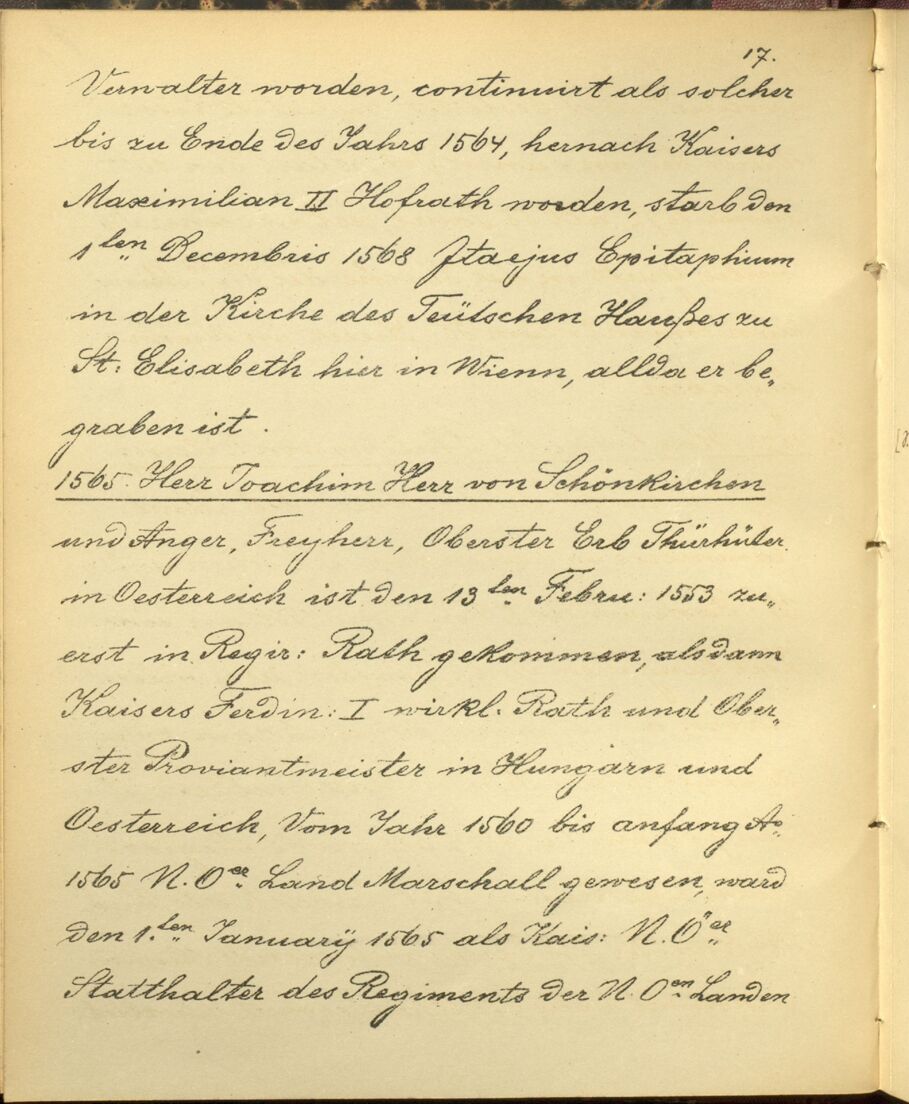 17.
Verwalter worden, continuirt als solcher
bis zu Ende des Jahrs 1564, hernach Kaisers
Maximilian II Hofrath worden, starb den
1ten Decembris 1568 Ita ejus Epitaphium
in der Kirche des Teütschen Haußes zu
St: Elisabeth hier in Wienn, allda er be„
graben ist.
1565. Herr Joachim Herr von Schönkirchen
und Anger, Freyherr, Oberster Erb Thürhüter
in Oesterreich ist den 13ten Febru: 1553 zu„
erst in Regir: Rath gekommen, alsdann
Kaisers Ferdin: I wirkl. Rath und Ober„
ster Proviantmeister in Hungarn und
Oesterreich, Vom Jahr 1560 bis anfang Ao
1565 N. Oer Land Marschall gewesen, ward
den 1.ten Januarÿ 1565 als Kais: N. Öer
Statthalter des Regiments der N. Oen Landen